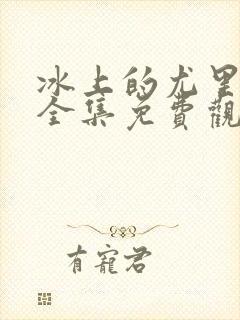 冰上的尤里
全集免費觀
有寵君